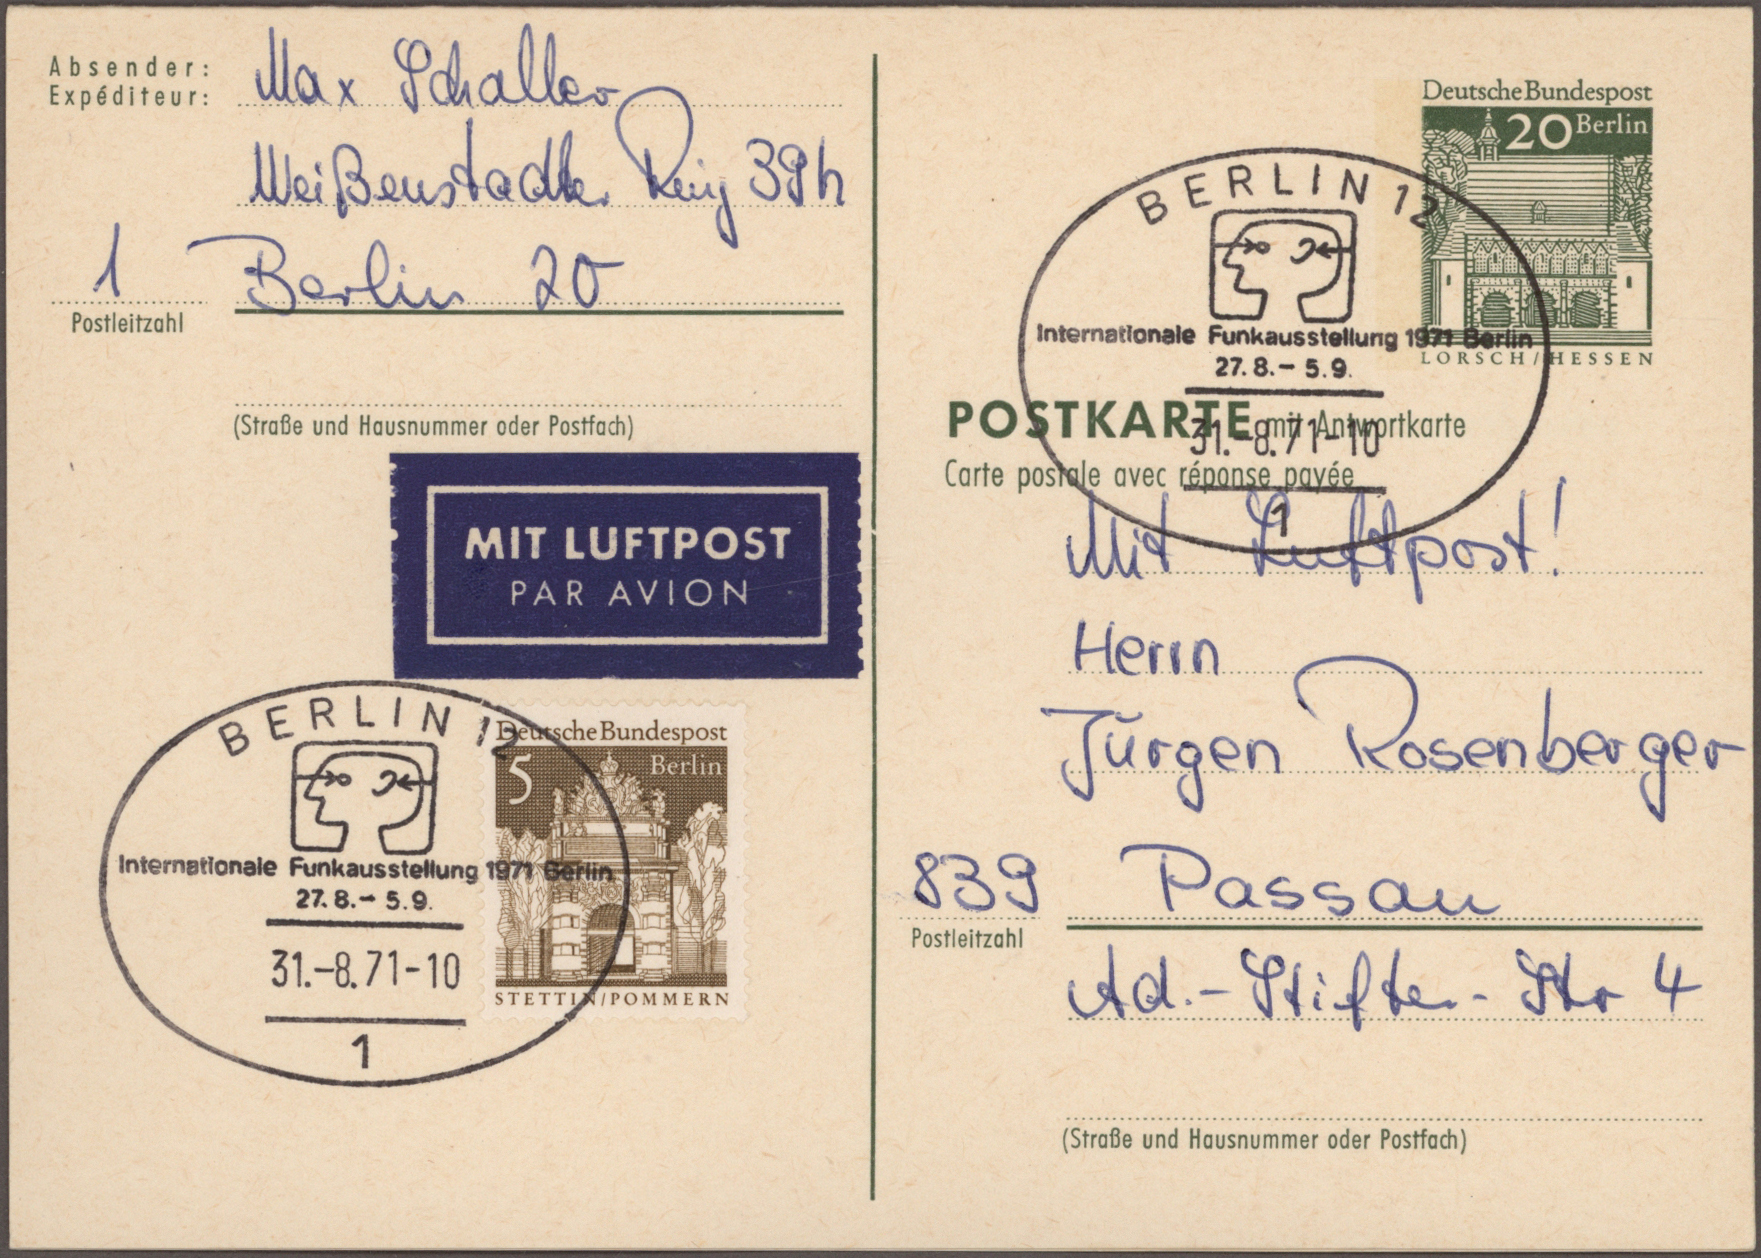 Absender:
Expéditeur:
Max Schaller
Weißenstadter Ring 39h
1 Berlin 20
Postleitzahl
(Straße und Hausnummer oder Postfach)
MIT LUFTPOST
PAR AVION
BERLIN 12
Internationale Funkausstellung 1971 Berlin
27.8.- 5.9.
31.-8.71-10
1
Deutsche Bundespost
5 Berlin
STETTIN/POMMERN
Deutsche Bundespost
20 Berlin
LORSCH/HESSEN
BERLIN 12
Internationale Funkausstellung 1971 Berlin
27.8.- 5.9.
31.-8.71-10
1
POSTKARTE mit Antwortkarte
Carte postale avec réponse payée
Mit Luftpost!
Herrn
Jürgen Rosenberger
839 Passau
Postleitzahl
Ad.-Stifter-Str 4
(Straße und Hausnummer oder Postfach)